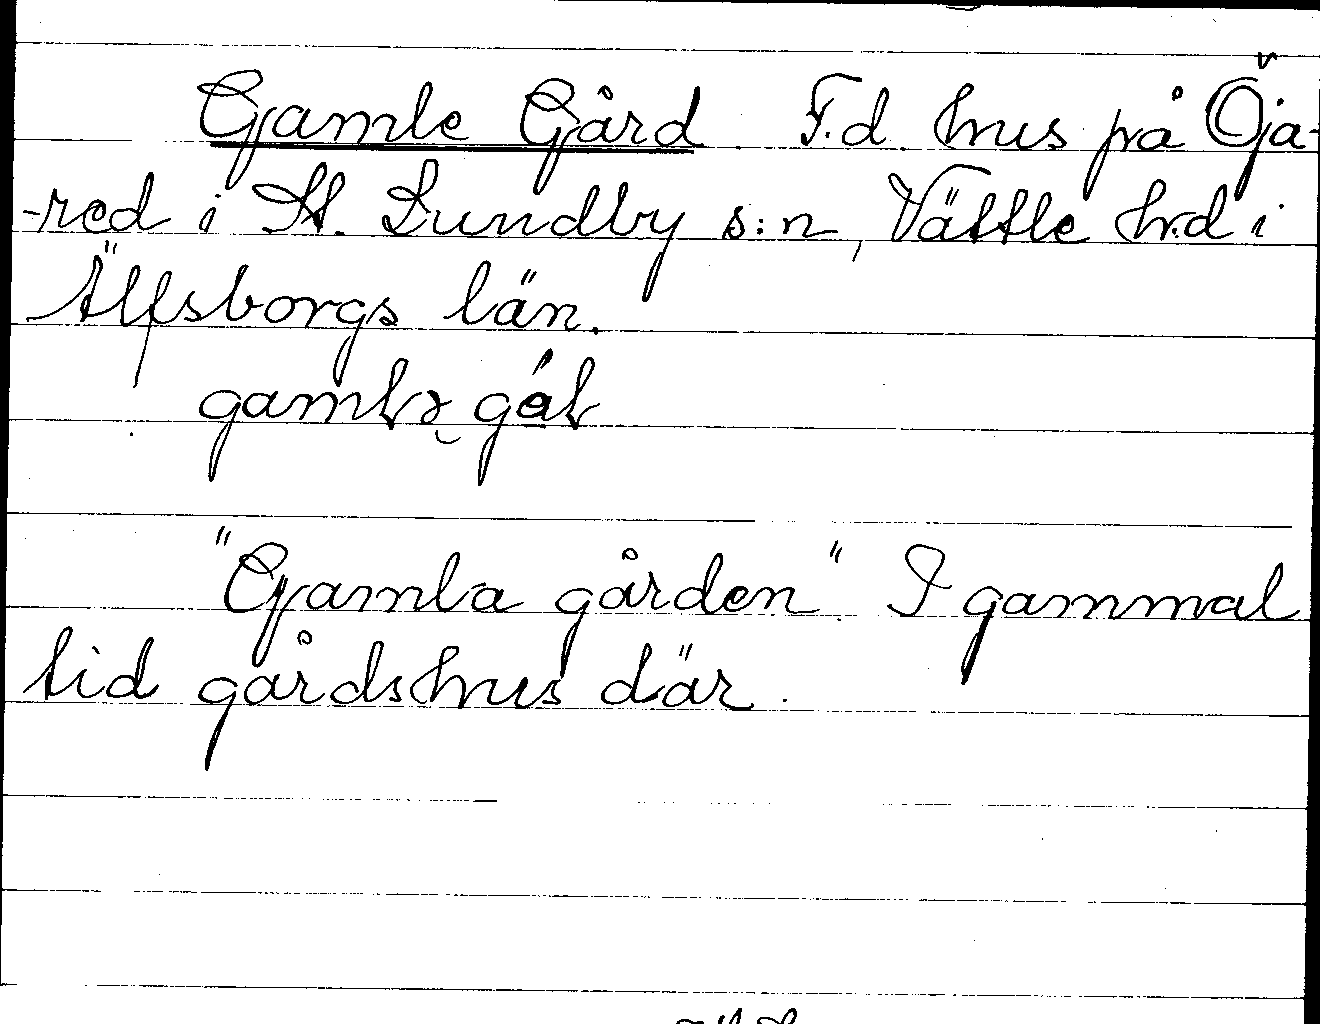 Gamle Gård F.d. hus på Öja-
-red i St. Lundby s:n, Vättle hrd i
Älfsborgs län.
"Gamla gården". I gammal
tid gårdshus där.